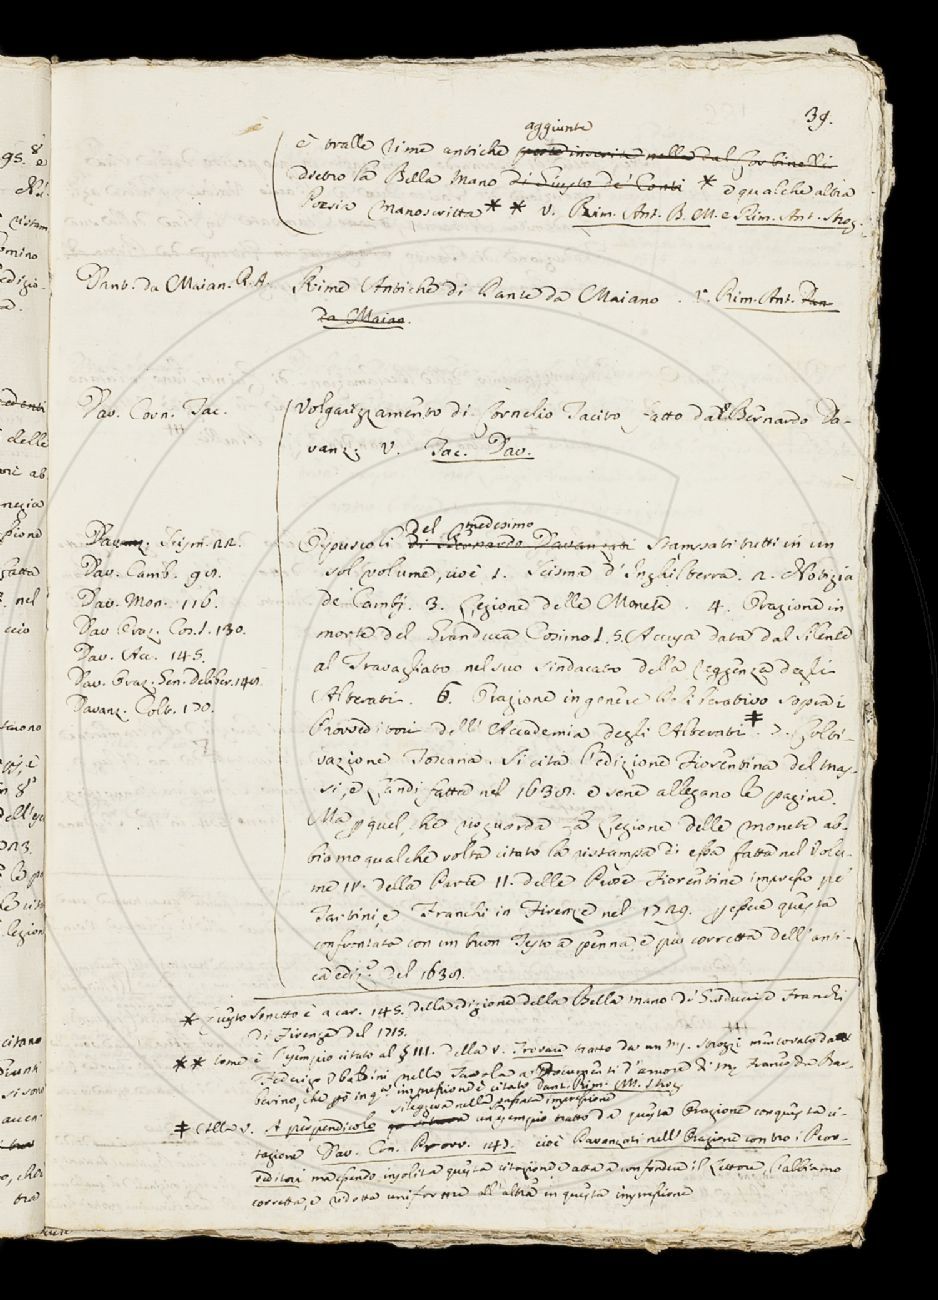 39.
aggiunte
è tralle rime antiche poste inserite nelle dal Corbinelli
dietro la Bella Mano di Giusto de' Conti * e qualche altra
Poesia Manoscritta ** V. Rim. Ant. B. M. e Rim. Ant. Stroz.
Dant. da Maian. R. A.
Rime Antiche di Dante da Maiano. V. Rim. Ant. Dan
da Maiao.
Dav. Corn. Tac.
Volgarizzamento di Cornelio Tacito fatto dal Bernardo Da-
vanz. V. Tac. Dav.
Davanz. Scism. 22.
Dav. Camb. 98.
Dav. Mon. 116.
Dav Oraz. Cos. I. 130.
Dav. Acc. 145.
Dav. Oraz. Gen. deliber. 148.
Davanz. Colt. 170.
Del medesimo
Opuscoli di Bernardo Davanzati stampati tutti in un
sol volume, cioè 1. Scisma d'Inghilterra. 2. Notizia
de' Cambj. 3. Lezione delle Monete. 4. Orazione in
morte del Granduca Cosimo I. 5. Accusa data dal Silente
al Travagliato nel suo sindacato della Reggenza degli
Alterati. 6. Orazione in genere Deliberativo sopra i
Provveditori dell'Accademia degli Alterati ‡. 7. Colti-
vazione Toscana. Si cita l'edizione Fiorentina del Mas-
si, e Landi fatta nel 1638. e sene allegano le pagine.
Ma p quel, che riguarda la Lezione delle monete ab-
biamo qualche volta citato la ristampa di essa fatta nel Volu-
me IV. della Parte II. delle Prose Fiorentine impresso pe'
Tartini, e Franchi in Firenze nel 1729. p essere questa
confrontata con un buon Testo a penna, e più corretta dell'anti-
ca ediz.e del 1638.
* Questo Sonetto è a car. 145. della edizione della Bella mano de' Guiducci, e Franchi
di Firenze del 1715.
** Come è l'esempio citato al § III. della V. Trovare tratto da un ms. Strozzi mentovato da
Federigo Ubaldini nella Tavola a' Documenti d'amore di m. Franc. da Bar-
berino, che p in q.a impressione è citato Dant. Rim. M. Stroz
si leggeva nella passata impressione
‡ Alla V. A perpendicolo un esempio tratto da questa Orazione con questa ci-
tazione Dav. Con. Provv. 147. cioè Davanzati nell'Orazione contro i Prov-
veditori ma essendo insolita questa citazione e atta a confondere il Lettore, l'abbiamo
corretta, e ridotta uniforme all'altra in questa impressione